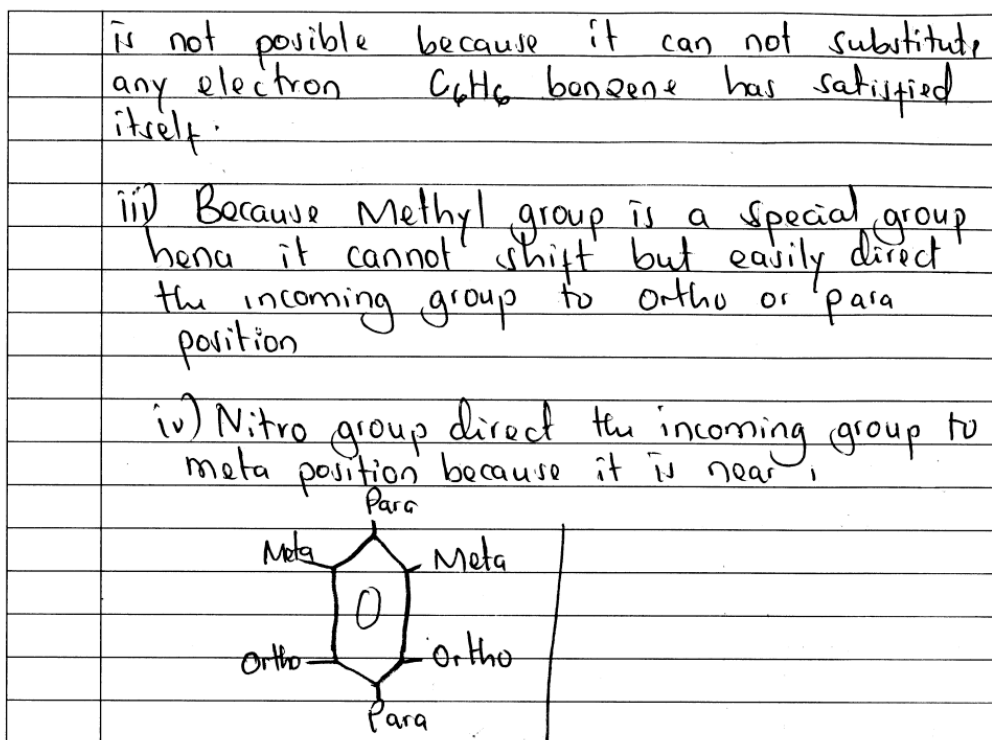 is not posible because it can not substitute
any electron C6H6 benzene has satisfied
itself.
iii) Because Methyl group is a special group
hena it cannot shift but easily direct
the incoming group to ortho or para
position
iv) Nitro group direct the incoming group to
meta position because it is near.
Para
Meta Meta
Ortho Ortho
Para